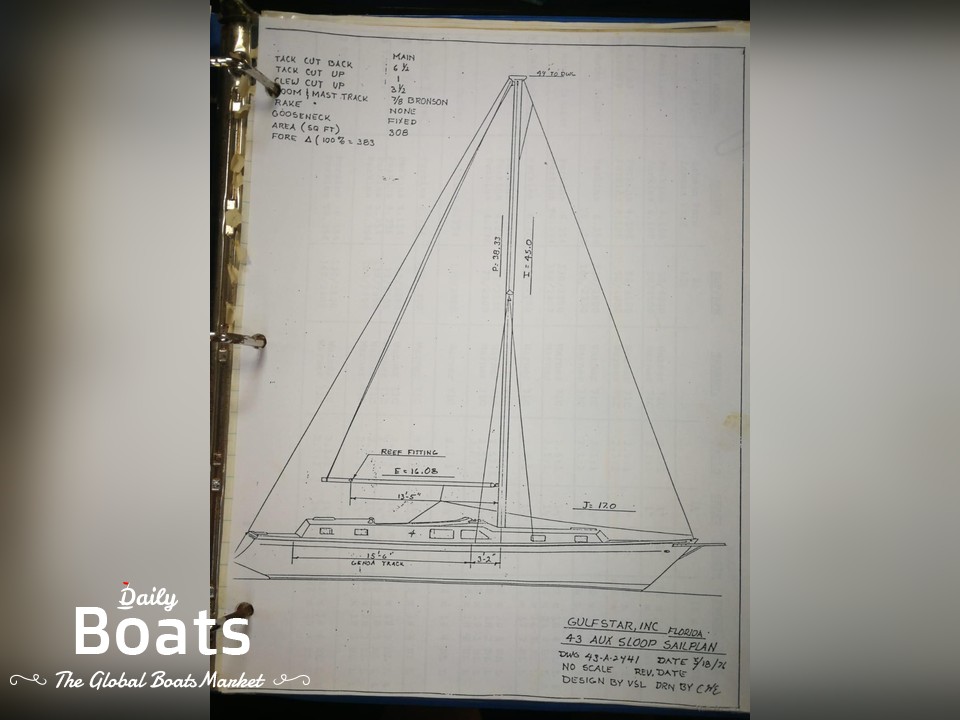 MAIN
TACK CUT BACK 6 ½
TACK CUT UP 1
CLEW CUT UP 3½
BOOM & MAST TRACK 7/8 BRONSON
RAKE " NONE
GOOSENECK FIXED
AREA (SQ FT) 308
FORE Δ (100% = 383
49' TO DWL
P= 38.33
I = 45.0
REEF FITTING
E = 16.08
13'-5"
J= 17.0
15'-6"
GENOA TRACK
3'-2"
GULFSTAR, INC FLORIDA.
43 AUX SLOOP SAILPLAN
DWG 43-A-2441 DATE 5/18/76
NO SCALE REV. DATE
DESIGN BY VSL DRN BY
Daily
Boats
The Global Boats Market